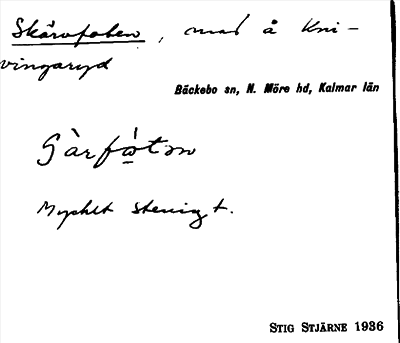 Skårvfaben, mad å Kni-
vingaryd
Bäckebo sn, N. Möre hd, Kalmar län
Mycket stenigt.
STIG STJÄRNE 1936